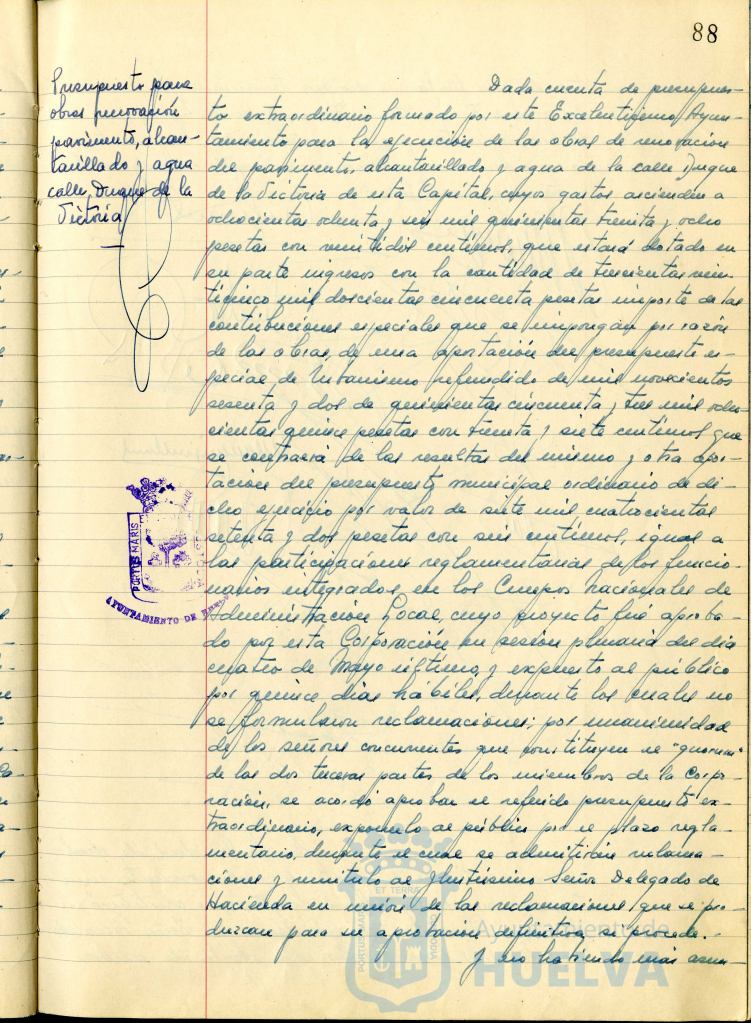 88
Presupuesto para
obras renovación
pavimento, alcan-
tarillado y agua
calle Duque de la
Victoria
Dada cuenta de presupues-
to extraordinario formado por este Excelentísimo Ayun-
tamiento para la ejecución de las obras de renovación
del pavimento, alcantarillado y agua de la calle Duque
de la Victoria de esta Capital, cuyos gastos ascienden a
ochocientas ochenta y seis mil quinientas treinta y ocho
pesetas con veintidós céntimos, que estará dotado en
su parte ingresos con la cantidad de trescientas vein-
ticinco mil doscientas cincuenta pesetas importe de las
contribuciones especiales que se impongan por razón
de las obras, de una aportación del presupuesto es-
pecial de Urbanismo refundido de mil novecientos
sesenta y dos de quinientas cincuenta y tres mil ocho-
cientas quince pesetas con treinta y siete céntimos que
se contraerá de las resultas del mismo y otra apor-
tación del presupuesto municipal ordinario de di-
cho ejercicio por valor de siete mil cuatrocientas
setenta y dos pesetas con seis céntimos, igual a
las participaciones reglamentarias de los funcio-
narios integrados en los Cuerpos Nacionales de
Administración Local, cuyo proyecto fué aproba-
do por esta Corporación en sesión plenaria del día
cuatro de Mayo último y expuesto al público
por quince días hábiles, durante los cuales no
se formularon reclamaciones; por unanimidad
de los señores concurrentes que constituyen el "quorum"
de las dos terceras partes de los miembros de la Corpo-
ración, se acordó aprobar el referido presupuesto ex-
traordinario, exponerlo al público por el plazo regla-
mentario, durante el cual se admitirán reclama-
ciones y remitirlo al Ilustrísimo Señor Delegado de
Hacienda en unión de las reclamaciones que se pro-
duzcan para su aprobación definitiva, si procede.-
Y no habiendo más asun-
PORTUS MARIS
AYUNTAMIENTO DE HUELVA
PORTUS MARIS ET TERRAE CUSTODIA
Ayuntamiento de
HUELVA